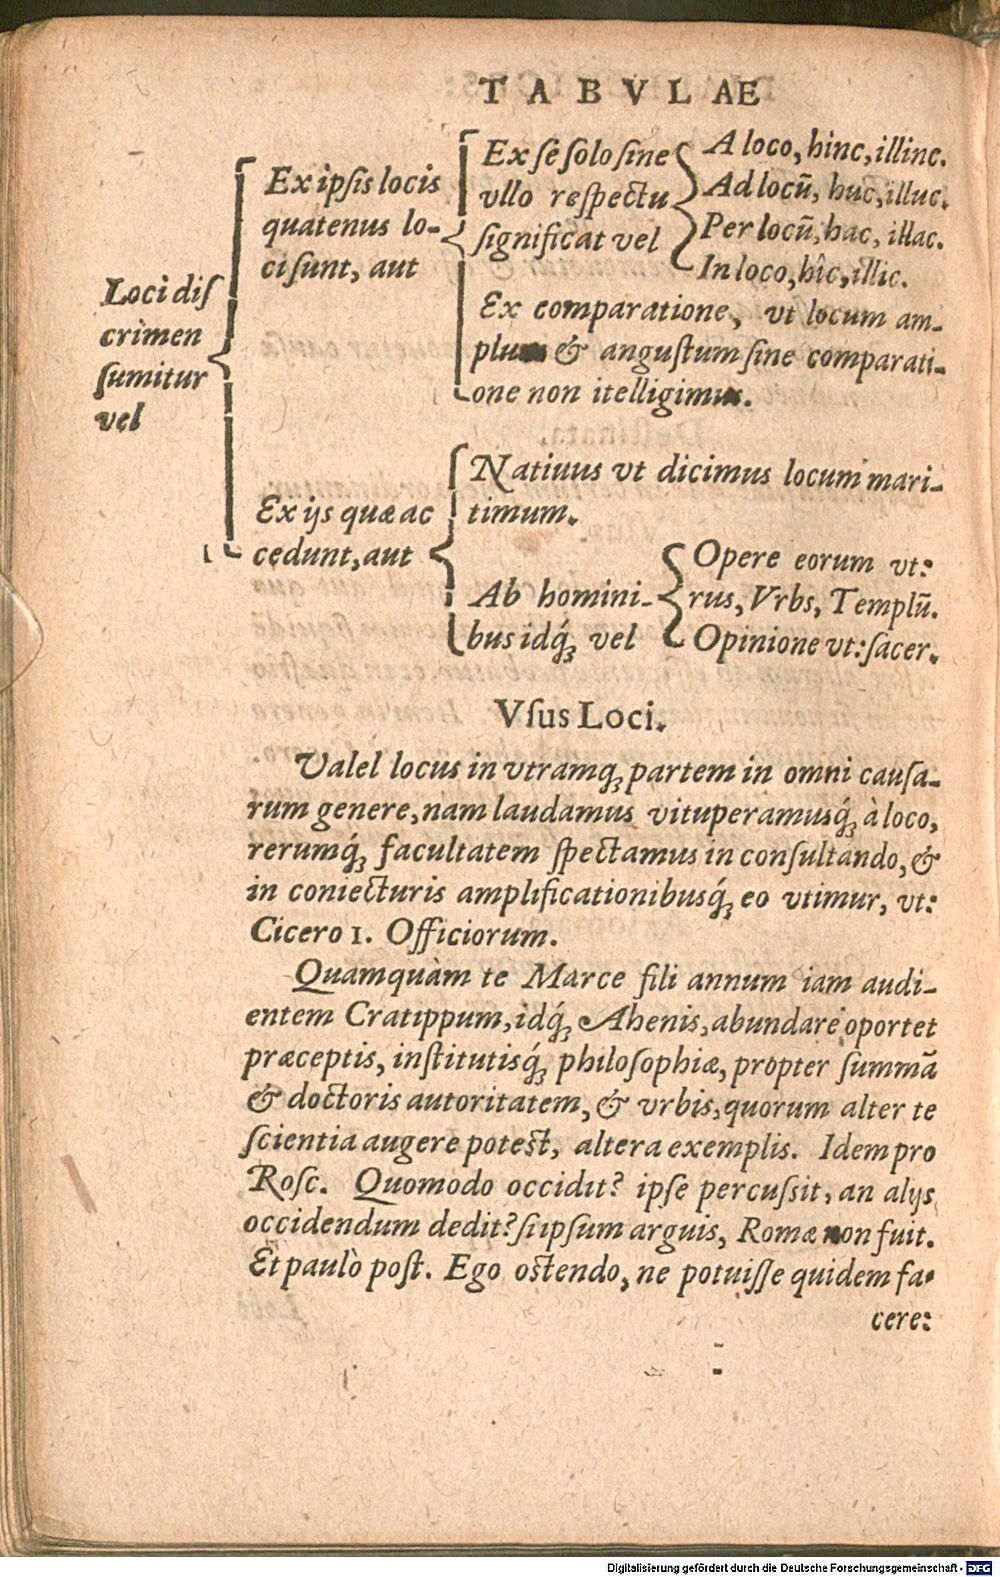 TABVLAE
Loci diſ
crimen
ſumitur
vel
Ex ipſis locis
quatenus lo-
ci ſunt, aut
Ex ſe ſolo ſine
vllo reſpectu
ſignificat vel
A loco, hinc, illinc.
Ad locũ, huc, illuc.
Per locũ, hac, illac.
In loco, hîc, illic.
Ex comparatione, vt locum am-
plum & anguſtum ſine comparati-
one non itelligimus.
Ex ijs quæ ac
cedunt, aut
Natiuus vt dicimus locum mari-
timum.
Ab homini-
bus idq́; vel
Opere eorum vt:
rus, Vrbs, Templũ.
Opinione vt: ſacer.
Vſus Loci.
Valel locus in vtramq; partem in omni cauſa-
rum genere, nam laudamus vituperamusq́; à loco,
rerumq́; facultatem ſpectamus in conſultando, &
in coniecturis amplificationibusq́; eo vtimur, vt:
Cicero 1. Officiorum.
Quamquàm te Marce fili annum iam audi-
entem Cratippum, idq́; Ahenis, abundare oportet
præceptis, inſtitutisq́; philoſophiæ, propter ſummã
& doctoris autoritatem, & vrbis, quorum alter te
ſcientia augere poteſt, altera exemplis. Idem pro
Roſc. Quomodo occidit? ipſe percuſsit, an alijs
occidendum dedit? ſi ipſum arguis, Romæ non fuit.
Et paulò poſt. Ego oſtendo, ne potuiſſe quidem fa-
cere:
Digitalisierung gefördert durch die Deutsche Forschungsgemeinschaft - DFG